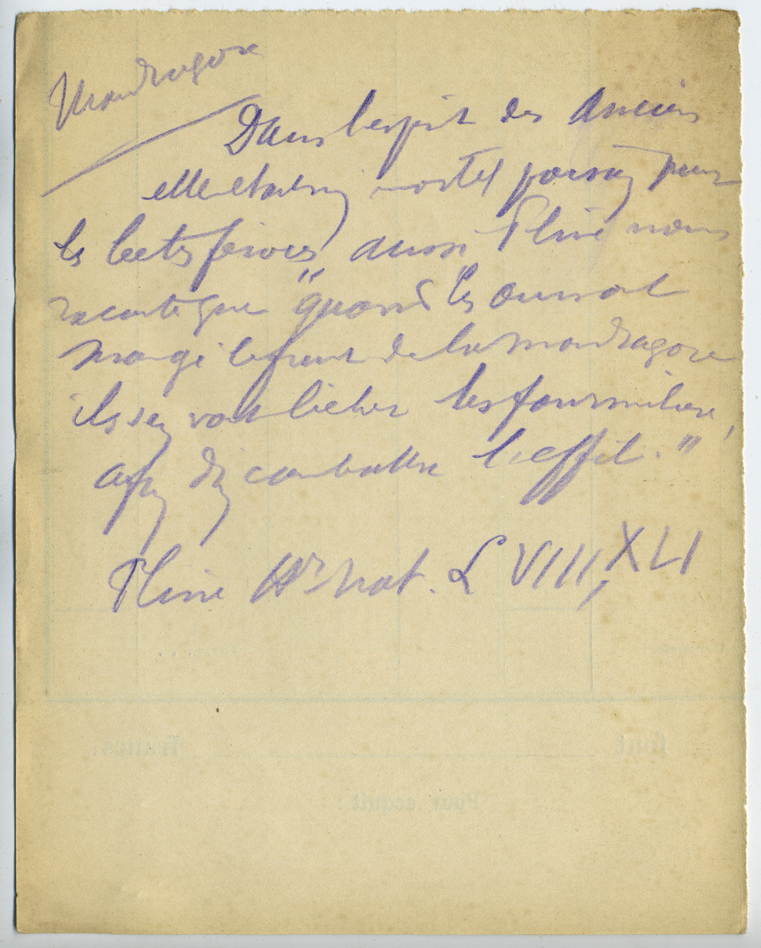 Mandragore
Dans l'esprit des Anciens
elle était un mortel poison pour
les bêtes féroces aussi Pline nous
raconte que "quand les ours ont
mangé le fruit de la mandragore
ils s'en vont lécher les fourmilières,
afin d'en combattre l'effet."
Pline Hre Nat. L VIII, XLI
font francs
Pour acquit